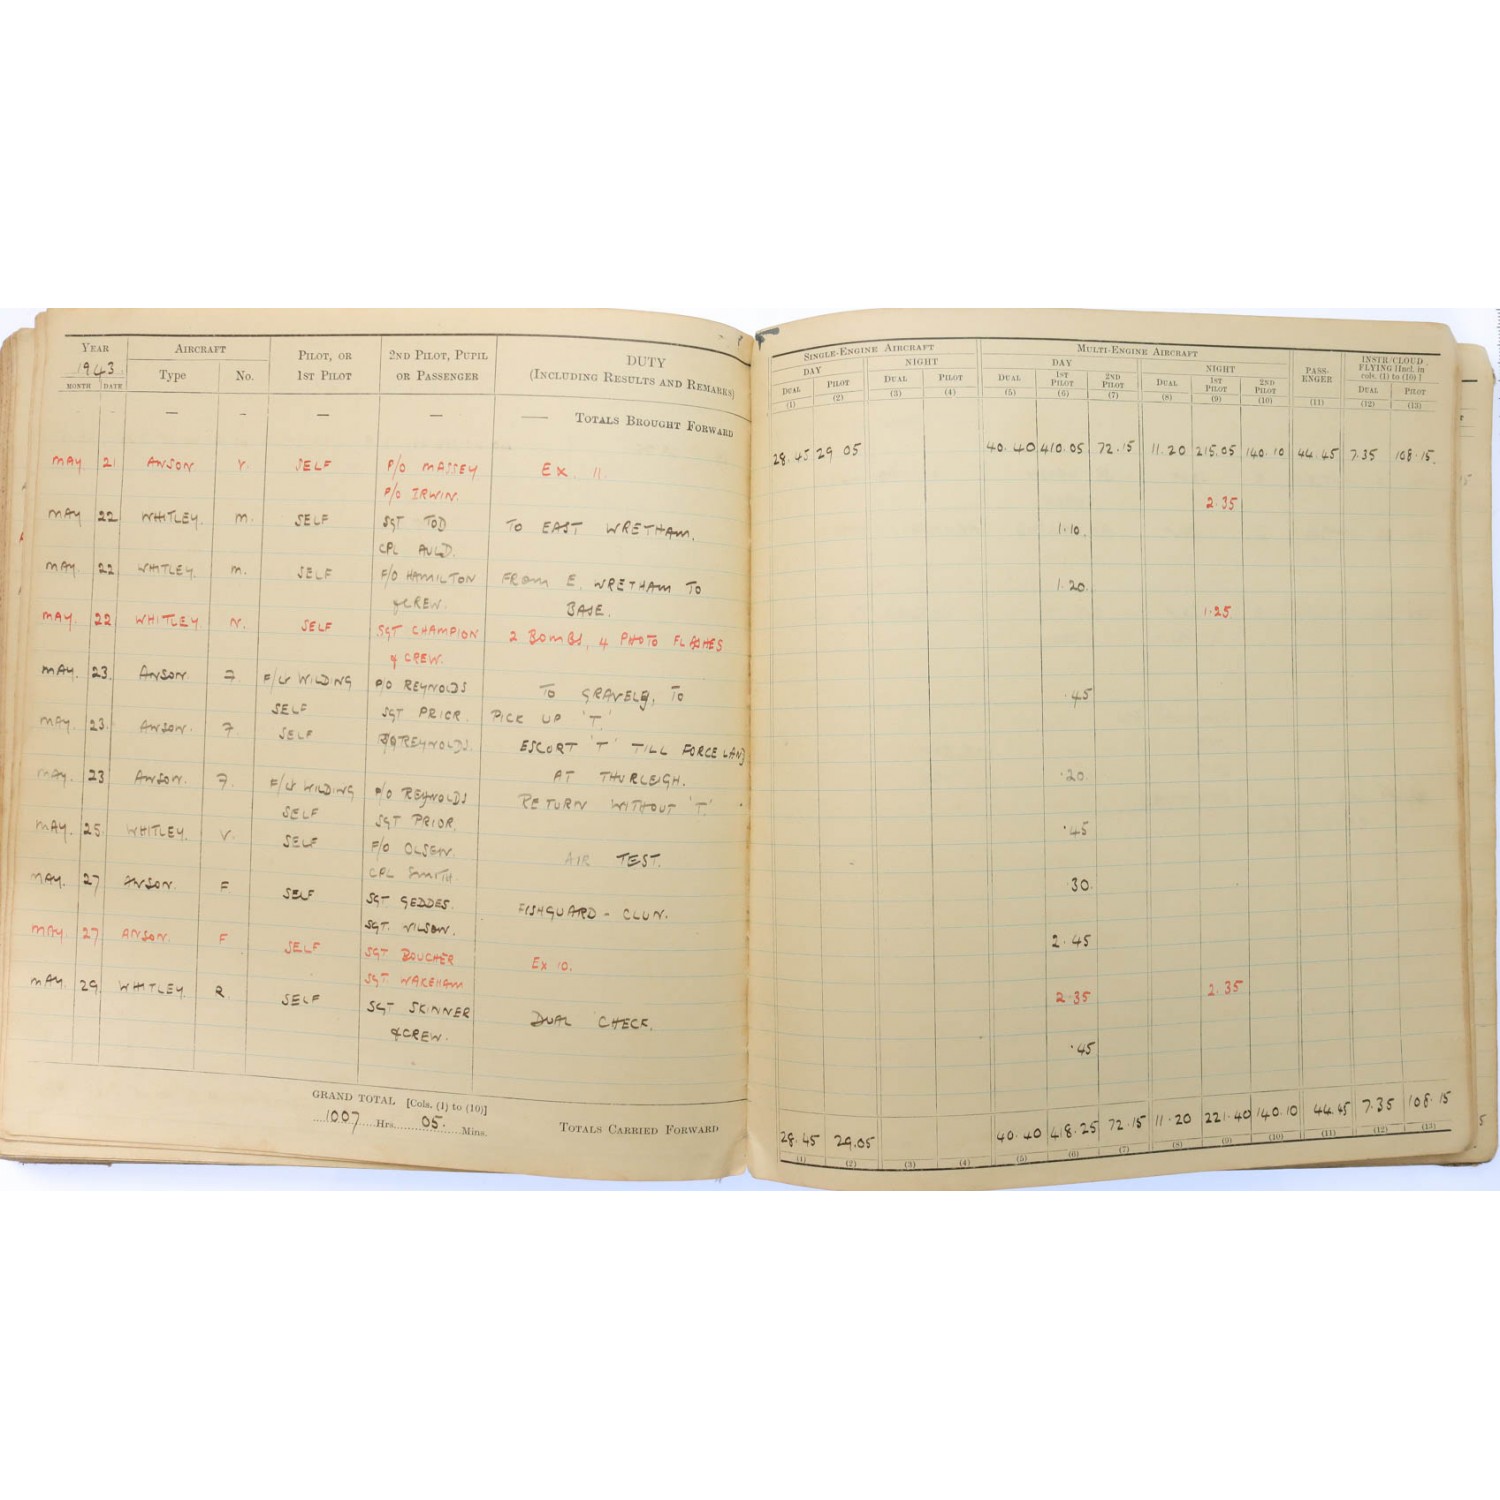 YEAR AIRCRAFT PILOT, OR 1ST PILOT 2ND PILOT, PUPIL OR PASSENGER DUTY (INCLUDING RESULTS AND REMARKS)
1943 Type No.
MONTH DATE
— — — — — TOTALS BROUGHT FORWARD
MAY 21 ANSON Y. SELF P/O MASSEY EX. 11.
P/O IRWIN.
MAY 22 WHITLEY. M. SELF SGT TOD TO EAST WRETHAM.
CPL AULD.
MAY. 22 WHITLEY. M. SELF F/O HAMILTON FROM E. WRETHAM TO
& CREW. BASE.
MAY. 22 WHITLEY N. SELF SGT CHAMPION 2 BOMBS, 4 PHOTO FLASHES
& CREW.
MAY. 23. ANSON 7. F/LT WILDING P/O REYNOLDS TO GRAVELEY, TO
SELF SGT PRIOR. PICK UP 'T'.
MAY. 23. ANSON. 7. SELF P/O REYNOLDS. ESCORT 'T' TILL FORCE LAND
AT THURLEIGH.
MAY. 23 ANSON. 7. F/LT WILDING P/O REYNOLDS RETURN WITHOUT 'T'.
SELF SGT PRIOR.
MAY. 25. WHITLEY. V. SELF F/O OLSEN. AIR TEST.
CPL SMITH.
MAY. 27 ANSON. F SELF SGT GEDDES. FISHGUARD - CLUN.
SGT. WILSON.
MAY 27 ANSON. F SELF SGT BOUCHER EX 10.
SGT WAKEHAM
MAY. 29. WHITLEY R. SELF SGT SKINNER DUAL CHECK.
& CREW.
GRAND TOTAL [Cols. (1) to (10)]
1007 Hrs. 05. Mins. TOTALS CARRIED FORWARD
SINGLE-ENGINE AIRCRAFT MULTI-ENGINE AIRCRAFT PASSENGER INSTR/CLOUD FLYING [Incl. in cols. (1) to (10)]
DAY NIGHT DAY NIGHT
DUAL PILOT DUAL PILOT DUAL 1ST PILOT 2ND PILOT DUAL 1ST PILOT 2ND PILOT DUAL PILOT
(1) (2) (3) (4) (5) (6) (7) (8) (9) (10) (11) (12) (13)
28.45 29 05 40.40 410.05 72.15 11.20 215.05 140.10 44.45 7.35 108.15.
2.35
1.10.
1.20.
1.25
.45
.20.
.45
.30.
2.45
2.35 2.35
.45
28.45 29.05 40.40 418.25 72.15 11.20 221.40 140.10 44.45 7.35 108.15
(1) (2) (3) (4) (5) (6) (7) (8) (9) (10) (11) (12) (13)